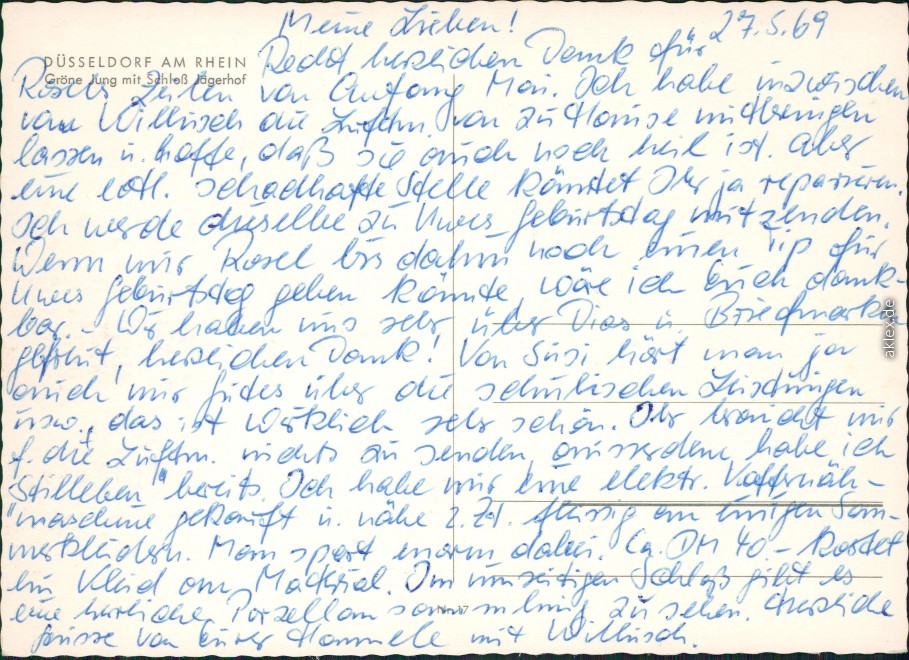 Meine Lieben! 27.5.69
DÜSSELDORF AM RHEIN
Gröne Jung mit Schloß Jägerhof
Recht herzlichen Dank für
Rosels Zeilen von Anfang Mai. Ich habe inzwischen
von Willusch die Luftm. von zu Hause mitbringen
lassen u. hoffe, daß sie auch noch heil ist. Aber
eine evtl. schadhafte Stelle könntet Ihr ja reparieren.
Ich werde dieselbe zu Uwes Geburtstag mitzenden.
Wenn mir Rosel bis dahin noch einen Tip für
Uwes Geburtstag geben könnte, wäre ich Euch dank-
bar. - Wir haben uns sehr über Dias u. Briefmarken
gefreut, herzlichen Dank! Von Susi hört man ja
auch nur Gutes über die schulischen Leistungen
usw., das ist wirklich sehr schön. Ihr braucht mir
f. die Luftm. nichts zu senden, ausserdem habe ich
"Stilleben" bereits. Ich habe mir eine elektr. Koffernäh-
maschine gekauft u. nähe z. Zt. fleissig an einigen Som-
merkleidern. Man spart enorm dabei. Ca. DM 40.- kostet
ein Kleid an Material. Im umseitigen Schloß gibt es
eine herrliche Porzellansammlung zu sehen. Herzliche
Grüsse von Eurer Hannele mit Willusch.
Nr. 17
aklex.de